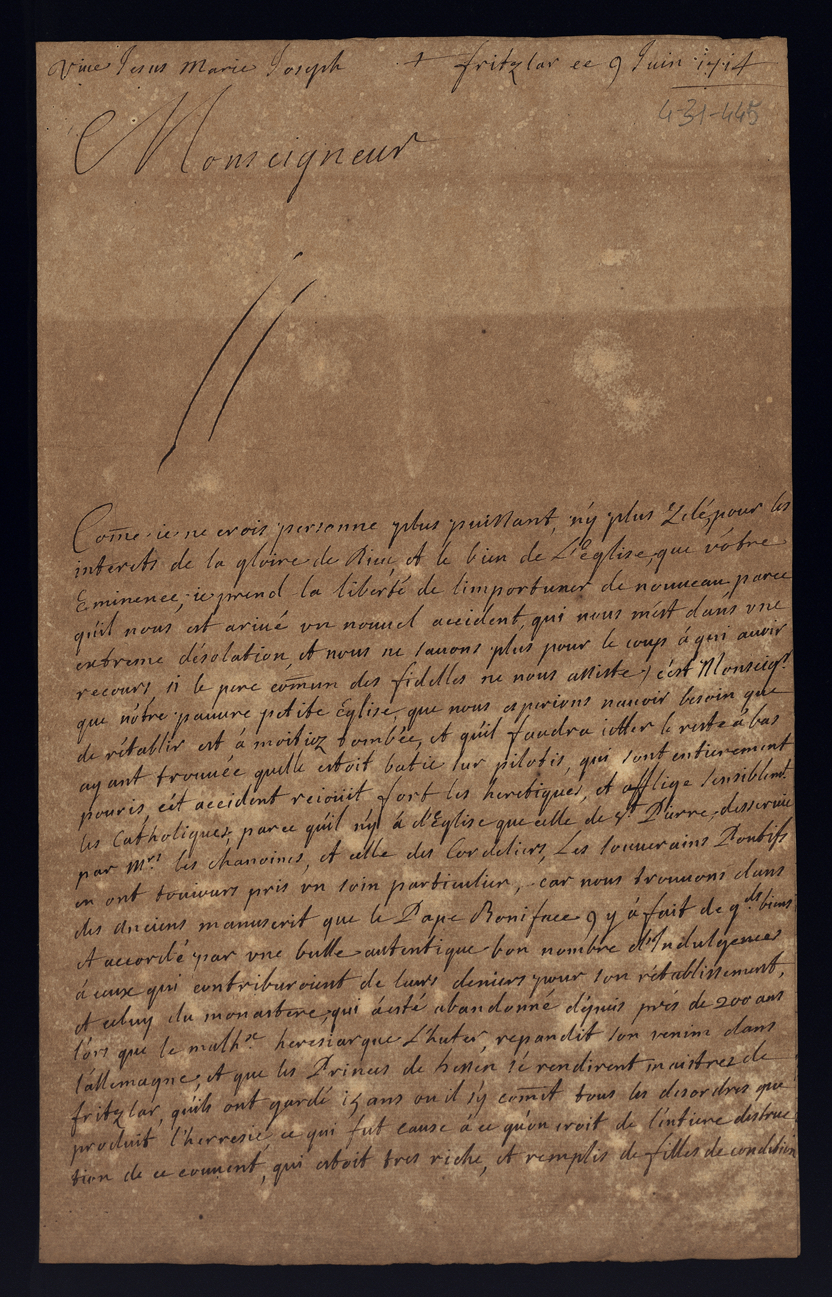 Vive Jesus Marie Joseph + fritzlar ce 9 Juin 1714
431-445
Monseigneur
Come ie ne crois personne plus puissant, n'y plus Zelé, pour les
interets de la gloire de Dieu, et le bien de L'Eglise, que vôtre
Eminence, ie prend la liberté de l'importuner de nouveau parce
qu'il nous est arivé un nouvel accident, qui nous mest dans vne
extreme désolation, et nous ne sauons plus pour le coup à qui auoir
recours, si le pere comun des fidelles ne nous assiste, c'est Monseigr
que nôtre pauure petite Eglise, que nous esperions nauoir besoin que
de rétablir est à moitiez tombée, et qu'il faudra ietter le reste à bas
ayant trouuée qu'elle estoit batie sur pilotis, qui sont entierement
pouris, cét accident reioüit fort les heretiques, et afflige sensiblemt
les Catholiques, parce qu'il n'y à d'Eglise que celle de St Pierre, desseruie
par Mrs les chanoines, et celle des Cordeliers, Les souuerains Pontifs
en ont toujours pris vn soin particulier, car nous trouuons dans
des anciens manuscrit que le Pape Boniface 9 y à fait de gds biens
et accordé par vne bulle autentique bon nombre d'Indulgences
à ceux qui contriburoient de leurs deniers pour son rétablissement,
et celuy du monastere, qui à esté abandonné dépuis prés de 200 ans
l'ors que le malhx heresiarque L'huter, repandit son venim dans
l'allemagne, et que les Princes de hessen se rendirent maistres de
fritzlar, qu'ils ont gardé 15 ans ou il s'y comit tous les desordres que
produit l'herresie, ce qui fut cause à ce qu'on croit de l'intiere destruc
tion de ce couuent, qui estoit tres riche, et remplis de filles de condition